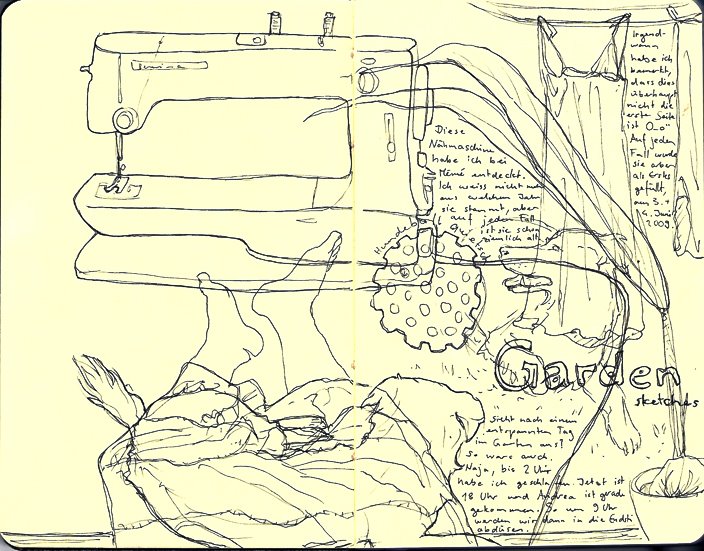 Bernina
Irgend-
wann
habe ich
bemerkt,
dass dies
überhaupt
nicht die
erste Seite
ist O_o"
Auf jeden
Fall wurde
sie aber
als Erstes
gefüllt,
am 3. +
4. Juni
2009.
Diese
Nähmaschine
habe ich bei
Mémé entdeckt.
Ich weiss nicht mehr
aus welchem Jahr
sie stammt, aber
auf jeden Fall
ist sie schon
ziemlich alt.
Garden
sketches
Sieht nach einem
entspannten Tag
im Garten aus?
So wars auch.
Naja, bis 2 Uhr
habe ich geschlafen. Jetzt ist
18 Uhr und Andrea ist grade
gekommen. So um 9 Uhr
werden wir dann in die
abdüsen.